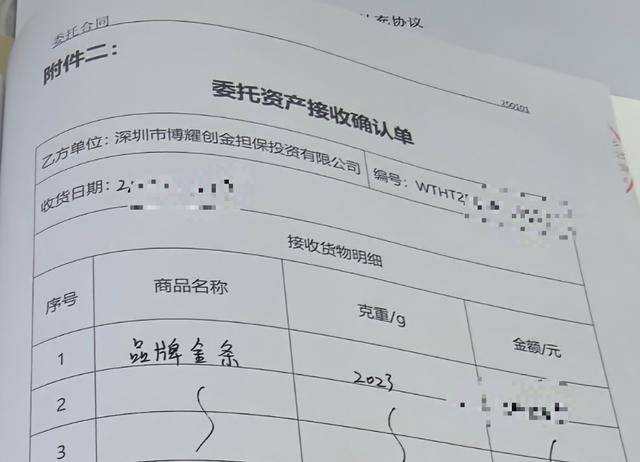 委托合同
充协议
附件二：
250101
委托资产接收确认单
乙方单位：深圳市博耀创金担保投资有限公司 编号：WTHT2
收货日期：2
接收货物明细
序号 商品名称 克重/g 金额/元
1 品牌金条 2023
2
3